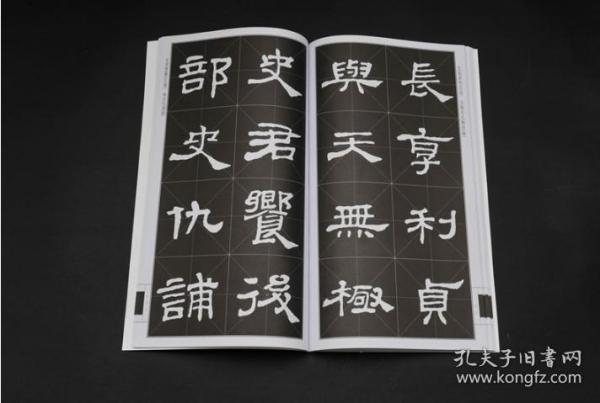 長享利貞
與天無極
史君饗後
部史仇誧
孔夫子旧书网
www.kongfz.com